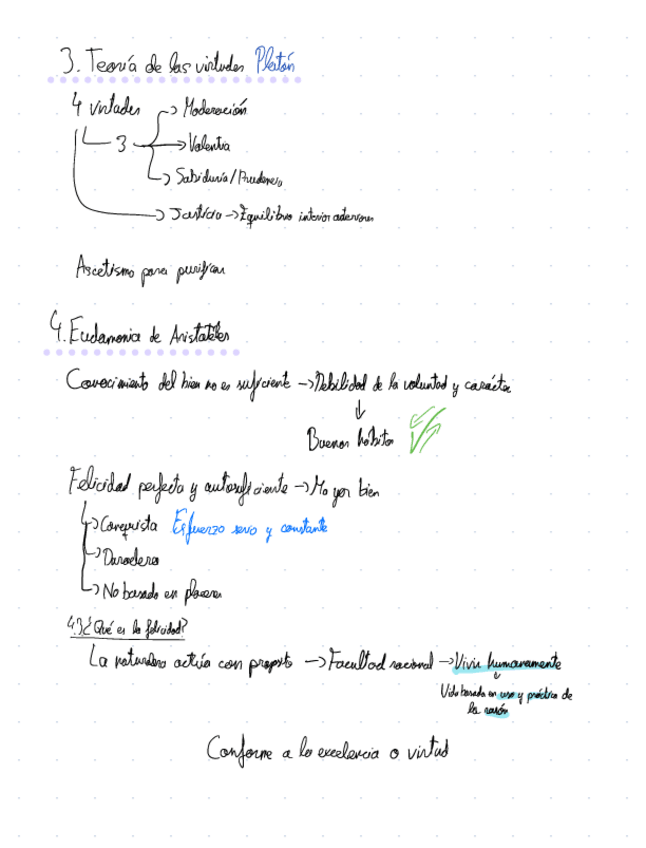 3. Teoría de las virtudes Platón
4 virtudes
→ Moderación
3 → Valentia
→ Sabiduría/Prudencia
→ Justicia → Equilibrio interior anteriores
Ascetismo para purificar
4. Eudamonia de Aristóteles
Conocimiento del bien no es suficiente → Debilidad de la voluntad y carácter
↓
Buenos hábitos
Felicidad perfecta y autosuficiente → Mayor bien
→ Conquista Esfuerzo serio y constante
→ Duradera
→ No basado en placeres
4.3 ¿Qué es la felicidad?
La naturaleza actúa con proposito → Facultad racional → Vivir humanamente
Vida basada en uso y práctica de
la razón
Conforme a la excelencia o virtud